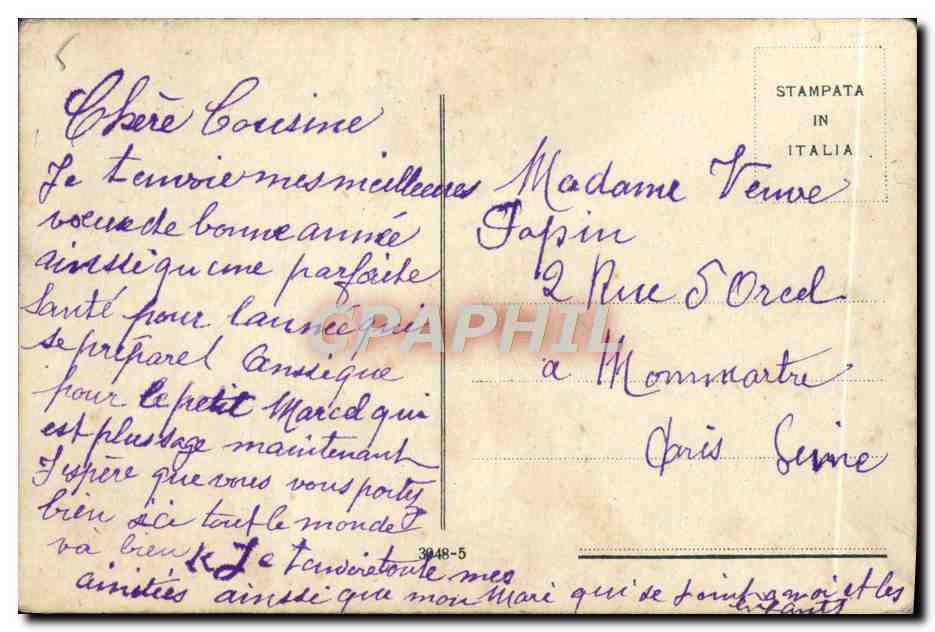 Chère Cousine
Je t'envoie mes meilleures
voeux de bonne année
ainssi qu'une parfaite
Santé pour l'année qui
se prépare
pour le petit Marcel qui
est plus sage maintenant
J'espère que vous vous portez
bien ici tout le monde
va bien Je t'envoie toute mes
amitiés ainssi que mon Mari qui se joint a moi et les
enfants
STAMPATA
IN
ITALIA
Madame Veuve
Papin
2 Rue D'Orcel
a Mommartre
Paris Seine
3048-5
CPAPHIL